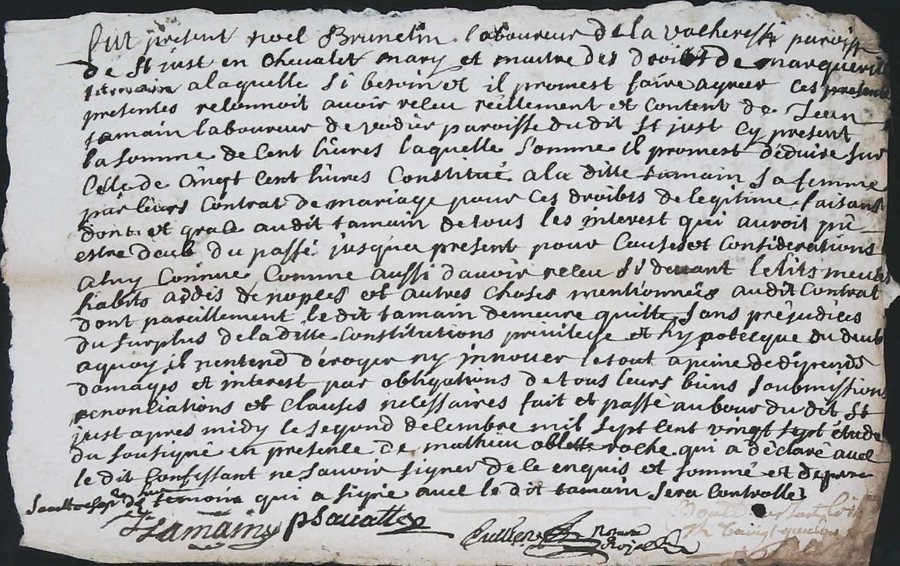 fut présent noel Brunelin laboureur de la vacheresse paroisse
de St just en Chevalet mary et maitre des droits de marguerite
tamain a laquelle si besoin et il promest faire agreer ces presentes
presentes reconnoit avoir receu réellement et content de Jean
tamain laboureur de paroisse du dit St just cy present
la somme de cent livres laquelle somme il promest déduire sur
celle de cinqt cent livres constitué a la ditte tamain sa femme
par leurs contrat de mariage pour ces droibts de legitime faisant
dont et grace audit tamain de tous les interest qui auroit pü
estre deub du passé jusqua present pour causes et considerations
a luy connue comme aussi d'avoir receu si devant le lits meubles
habits addis de noples et autres choses mentionnés audit contrat
dont pareillement le dit tamain demeure quitte sans préjudices
du surplus de la ditte constitutions privilege et hypotecque du deub
a quoy il n'entend déroger ny innover le tout a peine de dépends
damages et interest par obligations de tous leurs biens soubmissions
renonciations et clauses nécessaires fait et passé au bour du dit St
just apres midy le segond decembre mil sept cent vingt sept étude
du sousigné en presence de mathieu oblette roche qui a déclaré avec
le dit confessant ne savoir signer de ce enquis et sommé et de
temoins qui a signé avec le dit tamain sera controllé
J tamain p Sauatte